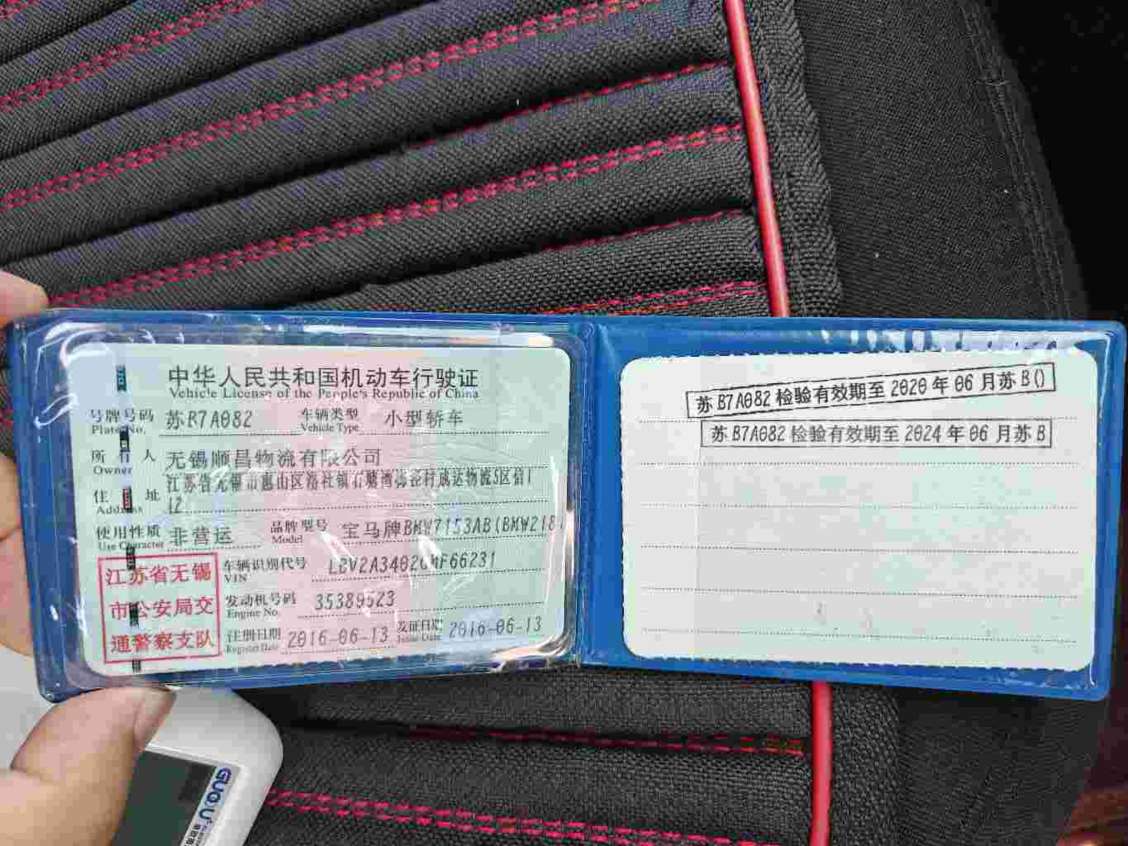 中华人民共和国机动车行驶证
Vehicle License of the People's Republic of China
号牌号码 苏B7A082 车辆类型 小型轿车
Plate No. Vehicle Type
所 人 无锡顺昌物流有限公司
Owner
江苏省无锡市惠山区洛社镇石塘湾 村 运物流5区
住 址 12
Address
使用性质 非营运 品牌型号 宝马牌BMW7153AB(BMW218
Use Character Model
江苏省无锡 车辆识别代号
VIN
市公安局交 发动机号码 35389523
Engine No.
通警察支队 注册日期 2016-06-13 发证日期 2016-06-13
Register Date Issue Date
苏B7A082检验有效期至2020年06月苏B()
苏B7A082检验有效期至2024年06月苏B